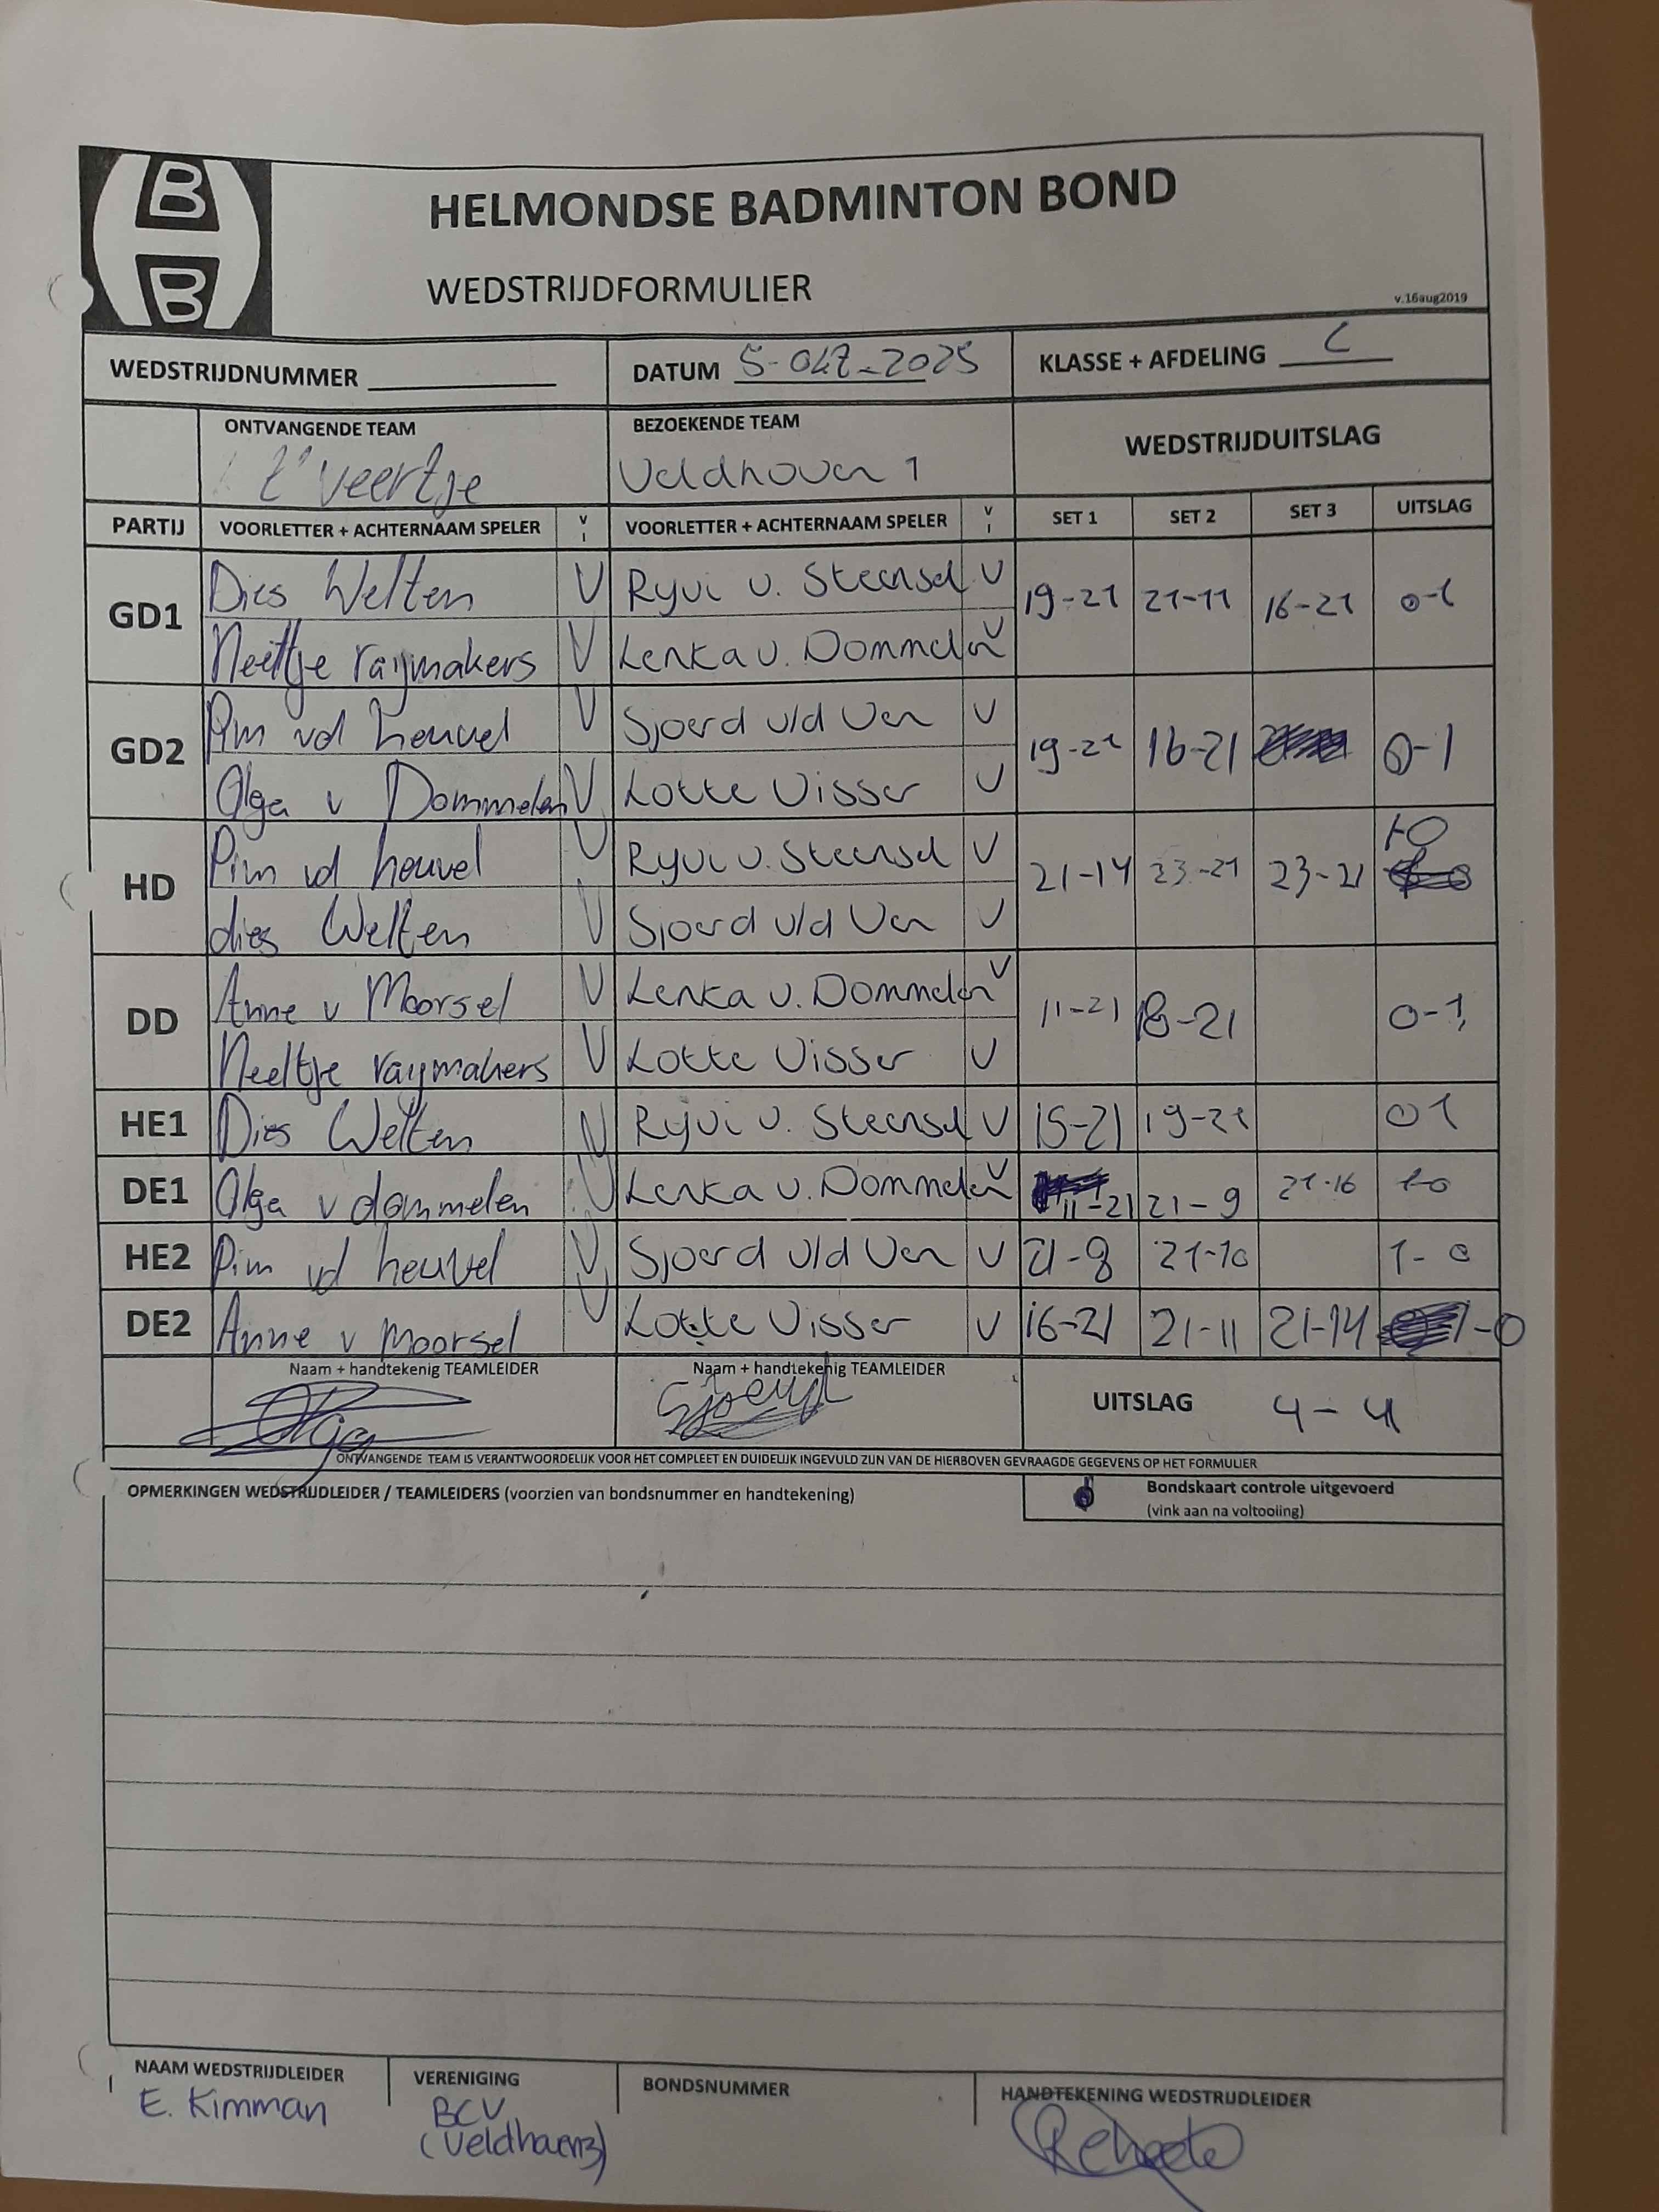 B
B
HELMONDSE BADMINTON BOND
WEDSTRIJDFORMULIER
v.16aug2019
WEDSTRIJDNUMMER
DATUM 5-okt-2025
KLASSE + AFDELING C
ONTVANGENDE TEAM
t'veertje
BEZOEKENDE TEAM
Veldhoven 1
WEDSTRIJDUITSLAG
PARTIJ VOORLETTER + ACHTERNAAM SPELER V I VOORLETTER + ACHTERNAAM SPELER V I SET 1 SET 2 SET 3 UITSLAG
GD1 Dies Welten V Ryvi v. Steensel V 19-21 21-11 16-21 0-1
Neeltje raijmakers V Lenka v. Dommelen V
GD2 Pim vd heuvel V Sjoerd v/d Ven V 19-21 16-21 0-1
Olga v Dommelen V Lotte Visser V
HD Pim vd heuvel V Ryvi v. Steensel V 21-14 23-21 23-21 1-0
dies Welten V Sjoerd v/d Ven V
DD Anne v Moorsel V Lenka v. Dommelen V 11-21 18-21 0-1
Neeltje raymakers V Lotte Visser V
HE1 Dies Welten V Ryvi v. Steensel V 15-21 19-21 0 1
DE1 Olga v dommelen V Lenka v. Dommelen V 11-21 21-9 21-16 1-0
HE2 Pim vd heuvel V Sjoerd v/d Ven V 21-8 21-10 1-0
DE2 Anne v Moorsel V Lotte Visser V 16-21 21-11 21-14 1-0
Naam + handtekenig TEAMLEIDER
Olga
Naam + handtekenig TEAMLEIDER
Sjoerd
UITSLAG 4-4
ONTVANGENDE TEAM IS VERANTWOORDELIJK VOOR HET COMPLEET EN DUIDELIJK INGEVULD ZIJN VAN DE HIERBOVEN GEVRAAGDE GEGEVENS OP HET FORMULIER
OPMERKINGEN WEDSTRIJDLEIDER / TEAMLEIDERS (voorzien van bondsnummer en handtekening)
Bondskaart controle uitgevoerd
(vink aan na voltooiing)
NAAM WEDSTRIJDLEIDER
E. Kimman
VERENIGING
BCV
BONDSNUMMER
HANDTEKENING WEDSTRIJDLEIDER